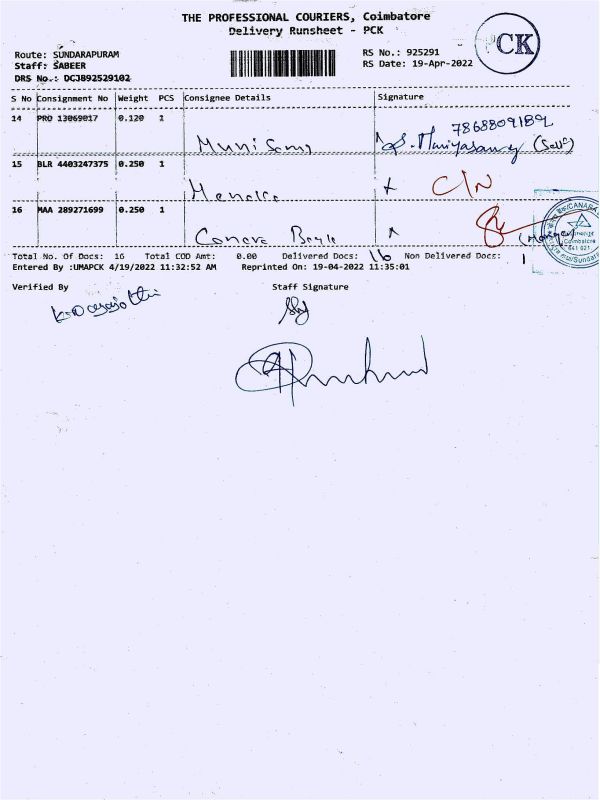 THE PROFESSIONAL COURIERS, Coimbatore
Delivery Runsheet - PCK
PCK
Route: SUNDARAPURAM
Staff: SABEER
DRS No.: DCJ892529102
RS No.: 925291
RS Date: 19-Apr-2022
S No Consignment No Weight PCS Consignee Details Signature
14 PRO 13069017 0.120 1
Muni Samy
(Self)
15 BLR 4403247375 0.250 1
C/N
16 MAA 289271699 0.250 1
CANARA
Coimbatore
641 021
Total No. Of Docs: 16 Total COD Amt: 0.00 Delivered Docs: 16 Non Delivered Docs:
Entered By :UMAPCK 4/19/2022 11:32:52 AM Reprinted On: 19-04-2022 11:35:01
Verified By Staff Signature